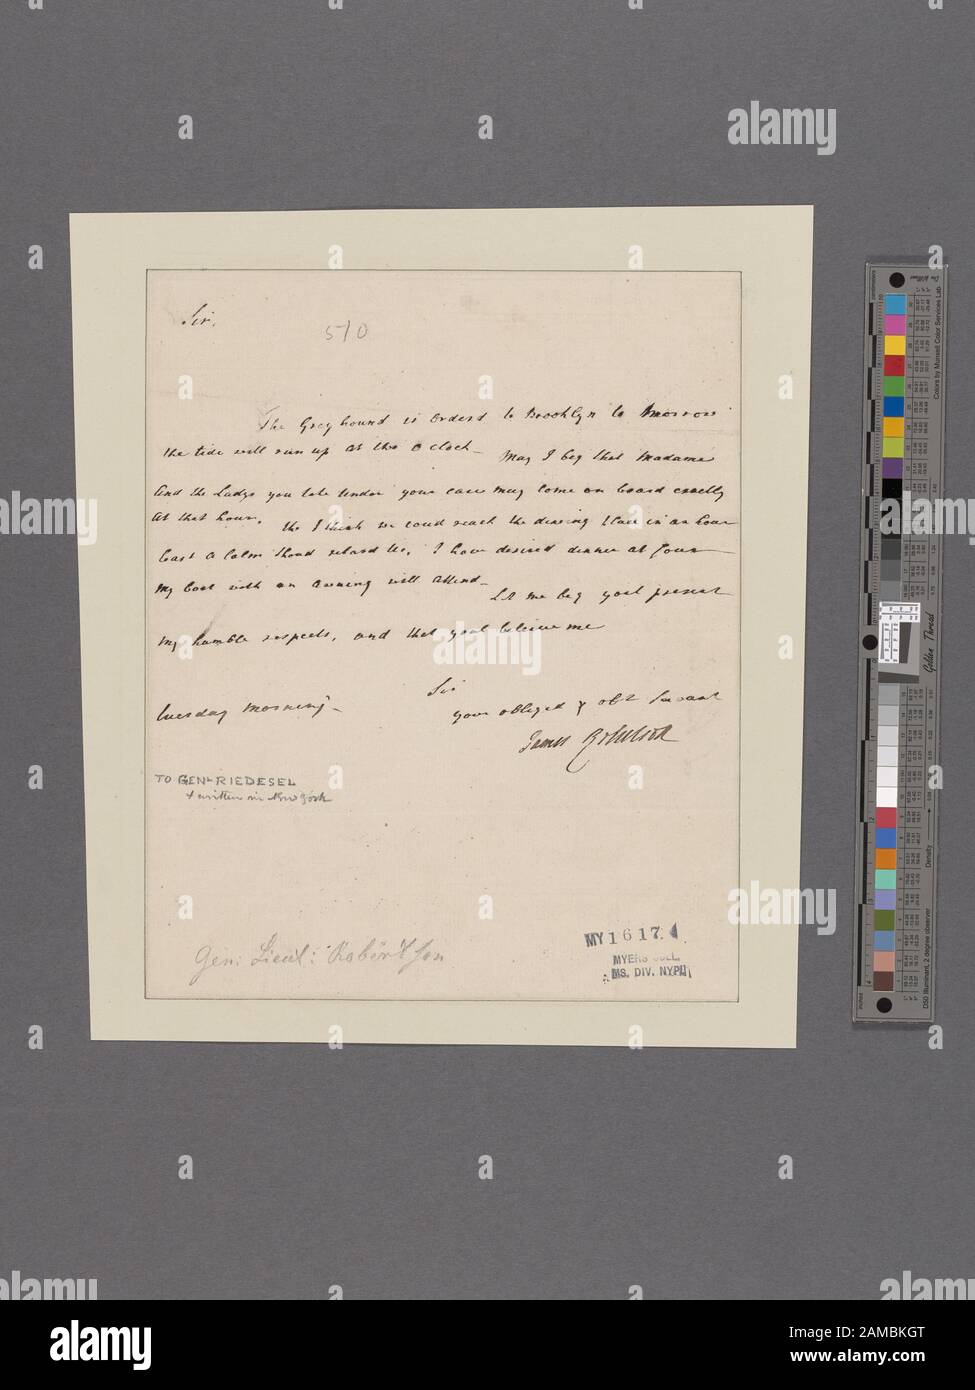 Sir,
510
The Greyhound is orderd to Brooklyn to morrow
the tide will run up at two o clock - May I beg that Madame
and the Ladys you take under your care may come on board exactly
at that hour, tho I think we coud reach the dining place in an hour
least a Calm shoud retard us, I have desired dinner at four
My boat with an awning will attend -
Let me beg youl present
my humble respects, and that youl believe me
Sir
Tuesday Morning -
your obliged & obt Servant
James Robertson
TO GENL RIEDESEL
& written in New York
Gen: Lieut: Robertson
MY 16 17
MYERS COLL.
MS. DIV. NYPL
alamy
Image ID: 2AMBKGT
www.alamy.com
Colors by Munsell Color Services Lab
Golden Thread
Density
D50 Illuminant, 2 degree observer
inches